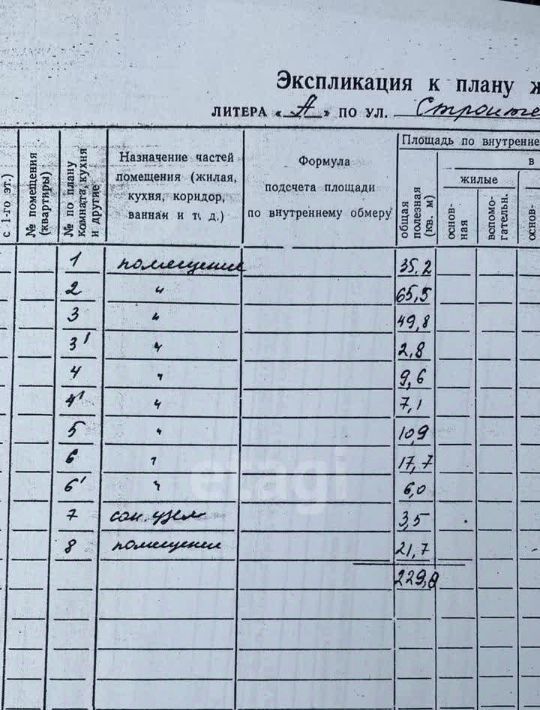 Экспликация к плану ж
ЛИТЕРА « А » ПО УЛ. Строите
с 1-го эт.)
№ помещения (квартиры)
№ по плану комната, кухня и другие
Назначение частей помещения (жилая, кухня, коридор, ванная и т. д.)
Формула подсчета площади по внутреннему обмеру
Площадь по внутренне
в
общая полезная (кв. м)
жилые
основ- ная
вспомо- гательн.
основ-
1 помещение 35.2
2 " 65,5
3 " 49,8
3' " 2,8
4 " 9,6
4' " 7,1
5 " 10,9
6 " 17,7
6' " 6,0
7 сан. узел 3,5
8 помещение 21,7
229,8
etagi